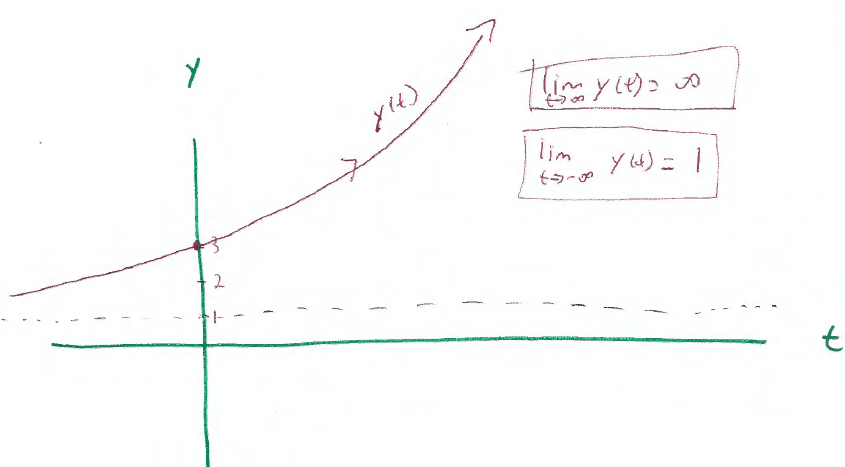 y
y(t)
lim y(t) = ∞
t→∞
lim y(t) = 1
t→-∞
3
2
1
t